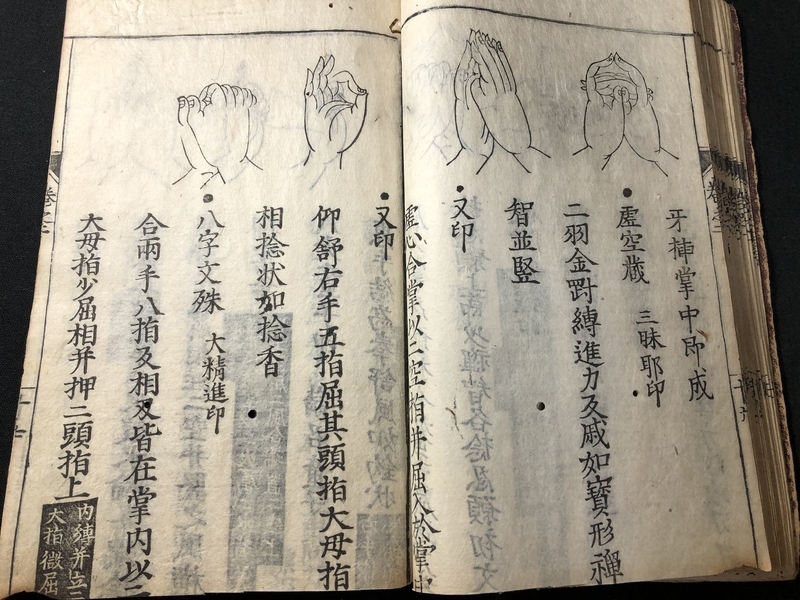 牙挿掌中即成
虚空蔵 三昧耶印
二羽金剛縛進力反蹙如寶形禪
智並竪
又印
虚心合掌以二空指并屈入於掌中
又印
仰舒右手五指屈其頭指大母指
相捻状如捻香
八字文殊 大精進印
合兩手八指反相叉皆在掌内以二
大母指少屈相并押二頭指上
内縛并立二
大指微屈
卷之三